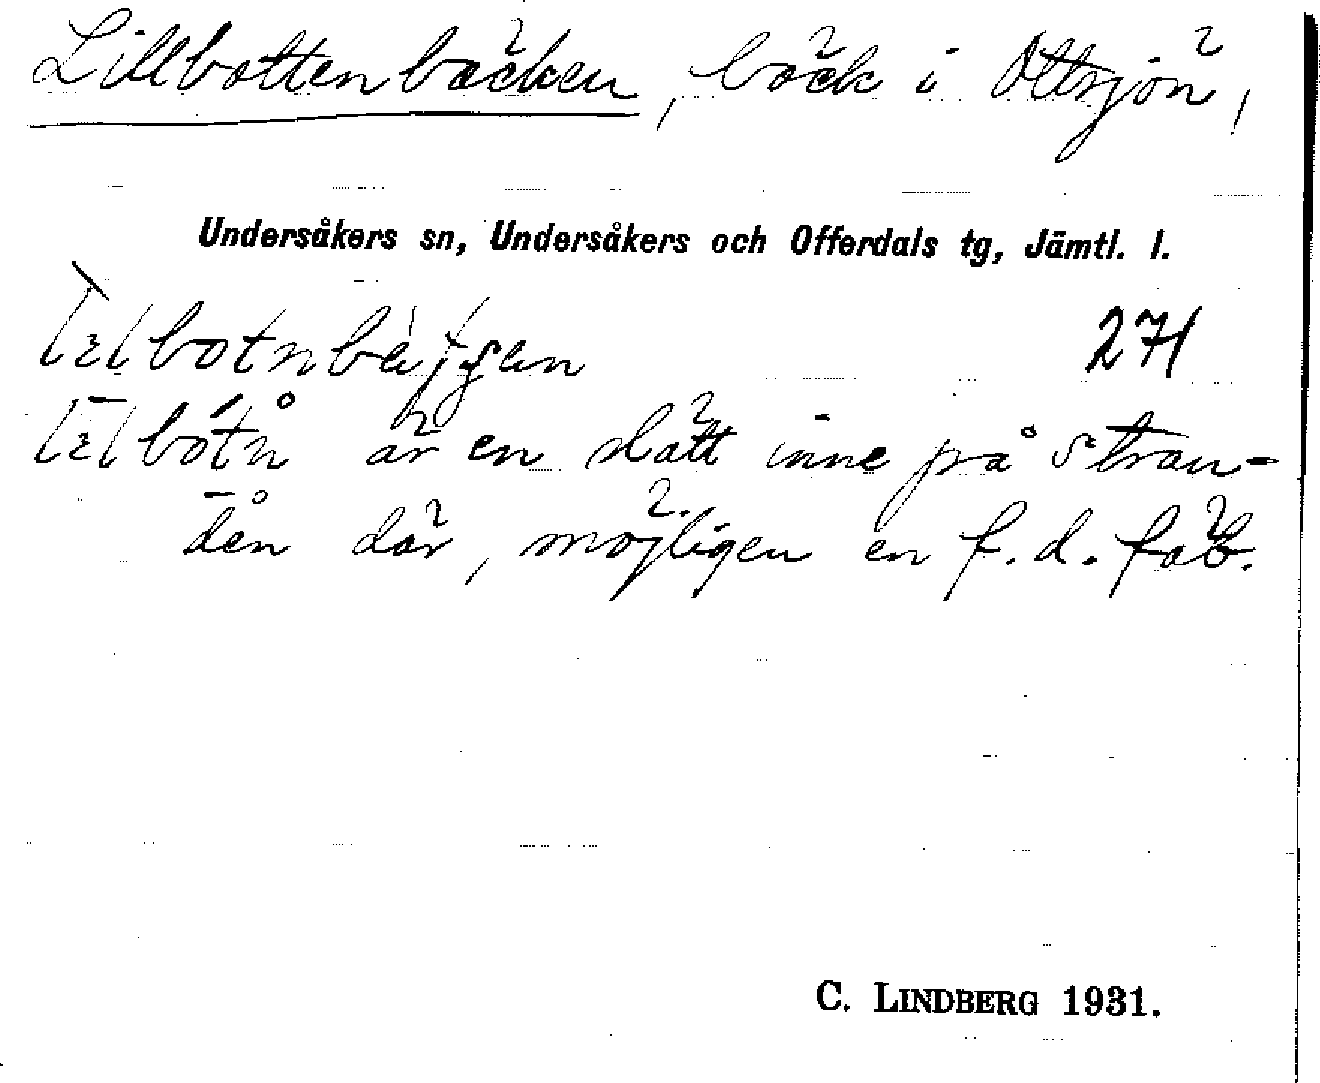 Lillbottenbäcken, bäck i Ottsjön,
Undersåkers sn, Undersåkers och Offerdals tg, Jämtl. l.
271
är en slätt inne på stran-
den där, möjligen en f. d. fäb.
C. LINDBERG 1931.